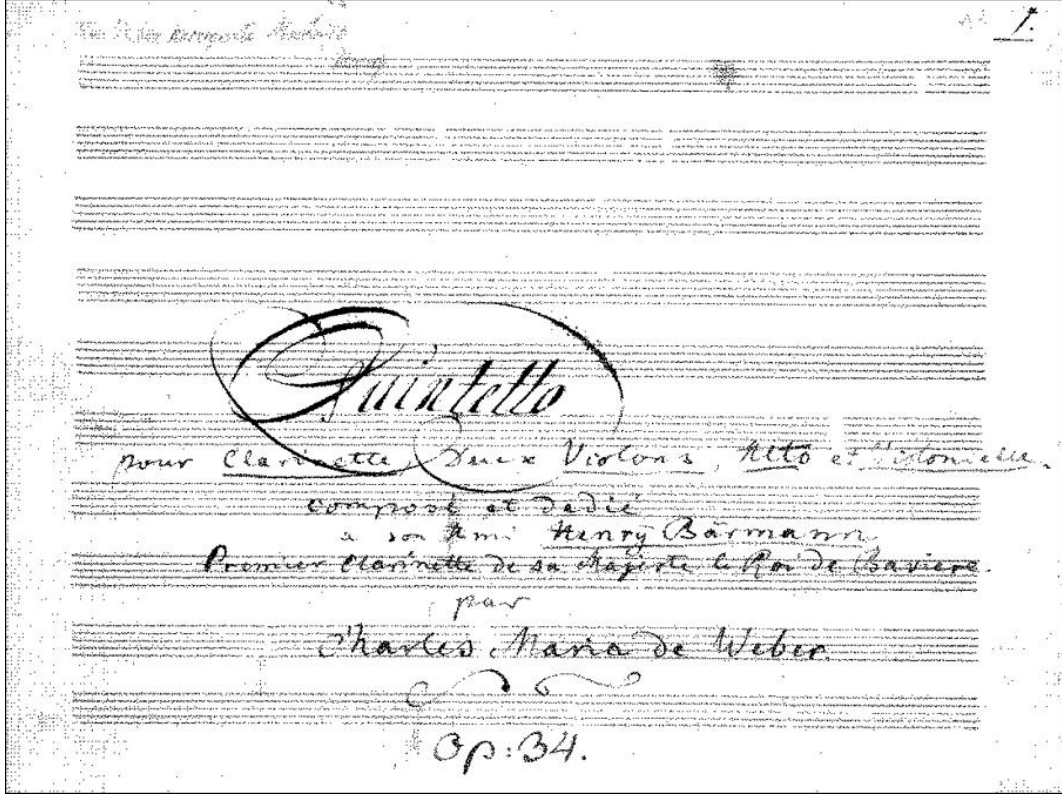 1.
Quintetto
pour Clarinette, Deux Violons, Alto et Violoncelle.
composé et dedié
a son Ami Henry Bärmann
Premier Clarinette de sa Majesté le Roi de Baviere.
par
Charles Maria de Weber.
Op: 34.